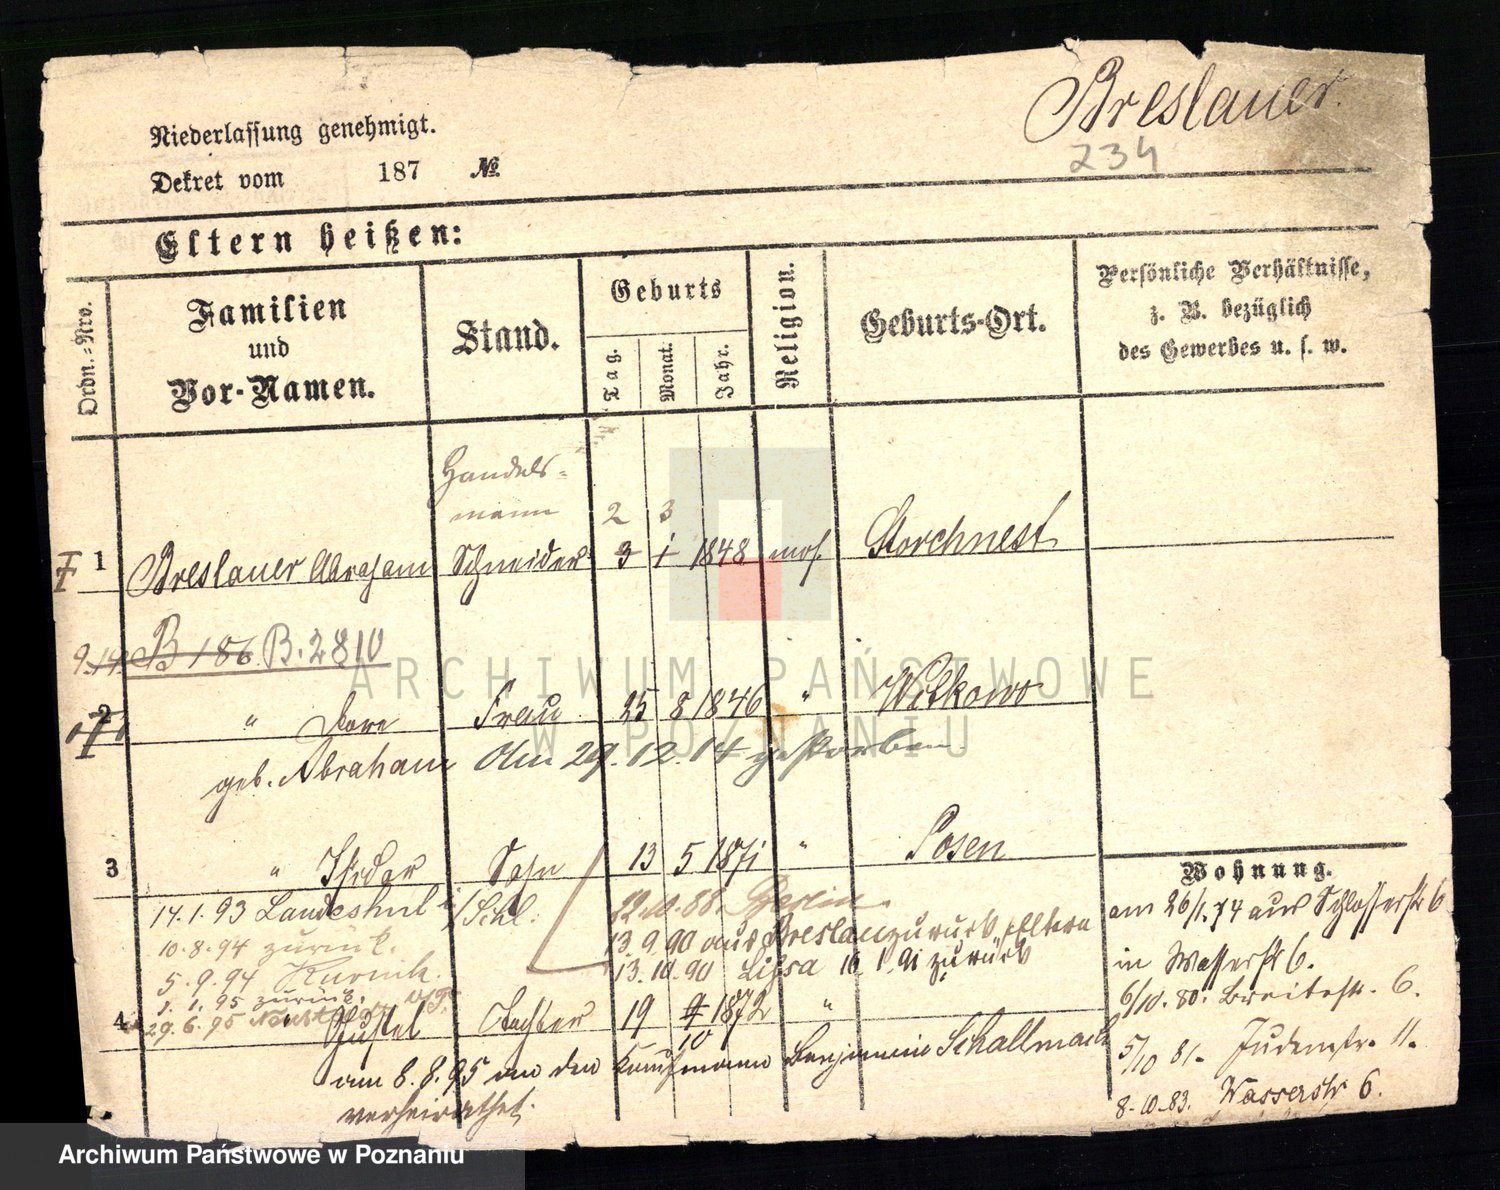 Breslauer.
234
Niederlassung genehmigt.
Dekret vom 187 №
Eltern heißen:
Ordn.-Nro.
Familien
und
Vor-Namen.
Stand.
Geburts
Tag.
Monat.
Jahr.
Religion.
Geburts-Ort.
Persönliche Verhältnisse,
z. B. bezüglich
des Gewerbes u. s. w.
Handels-
mann 2 3
1 Breslauer Abraham Schneider 3 1 1848 mos. Storchnest
B 186 B. 2810
2 " Dore Frau 25 8 1846 " Witkowo
geb. Abraham Am 29.12.14 gestorben.
3 " Isidor Sohn 13 5 1871 " Posen
14.1.93 Landeshut i/Schl. 22.10.88. Berlin
10.8.94 zurück. 13.9.90 aus Breslau zurück, Eltern
5.9.94 Kurnik. 13.10.90 Lissa 10.1.91 zurück
1.1.95 zurück.
29.6.95
4 " Gustel Tochter 19 9 1872 "
10
am 8.8.95 an den Kaufmann Benjamin Schallmach
verheirathet.
Wohnung.
am 26/1.74 aus Schlosserstr 6
in Wasserstr 6.
6/10.80. Breitestr. 6.
5/10 81. Judenstr. 11.
8.10.83. Wasserstr 6.
ARCHIWUM PAŃSTWOWE
W POZNANIU
Archiwum Państwowe w Poznaniu